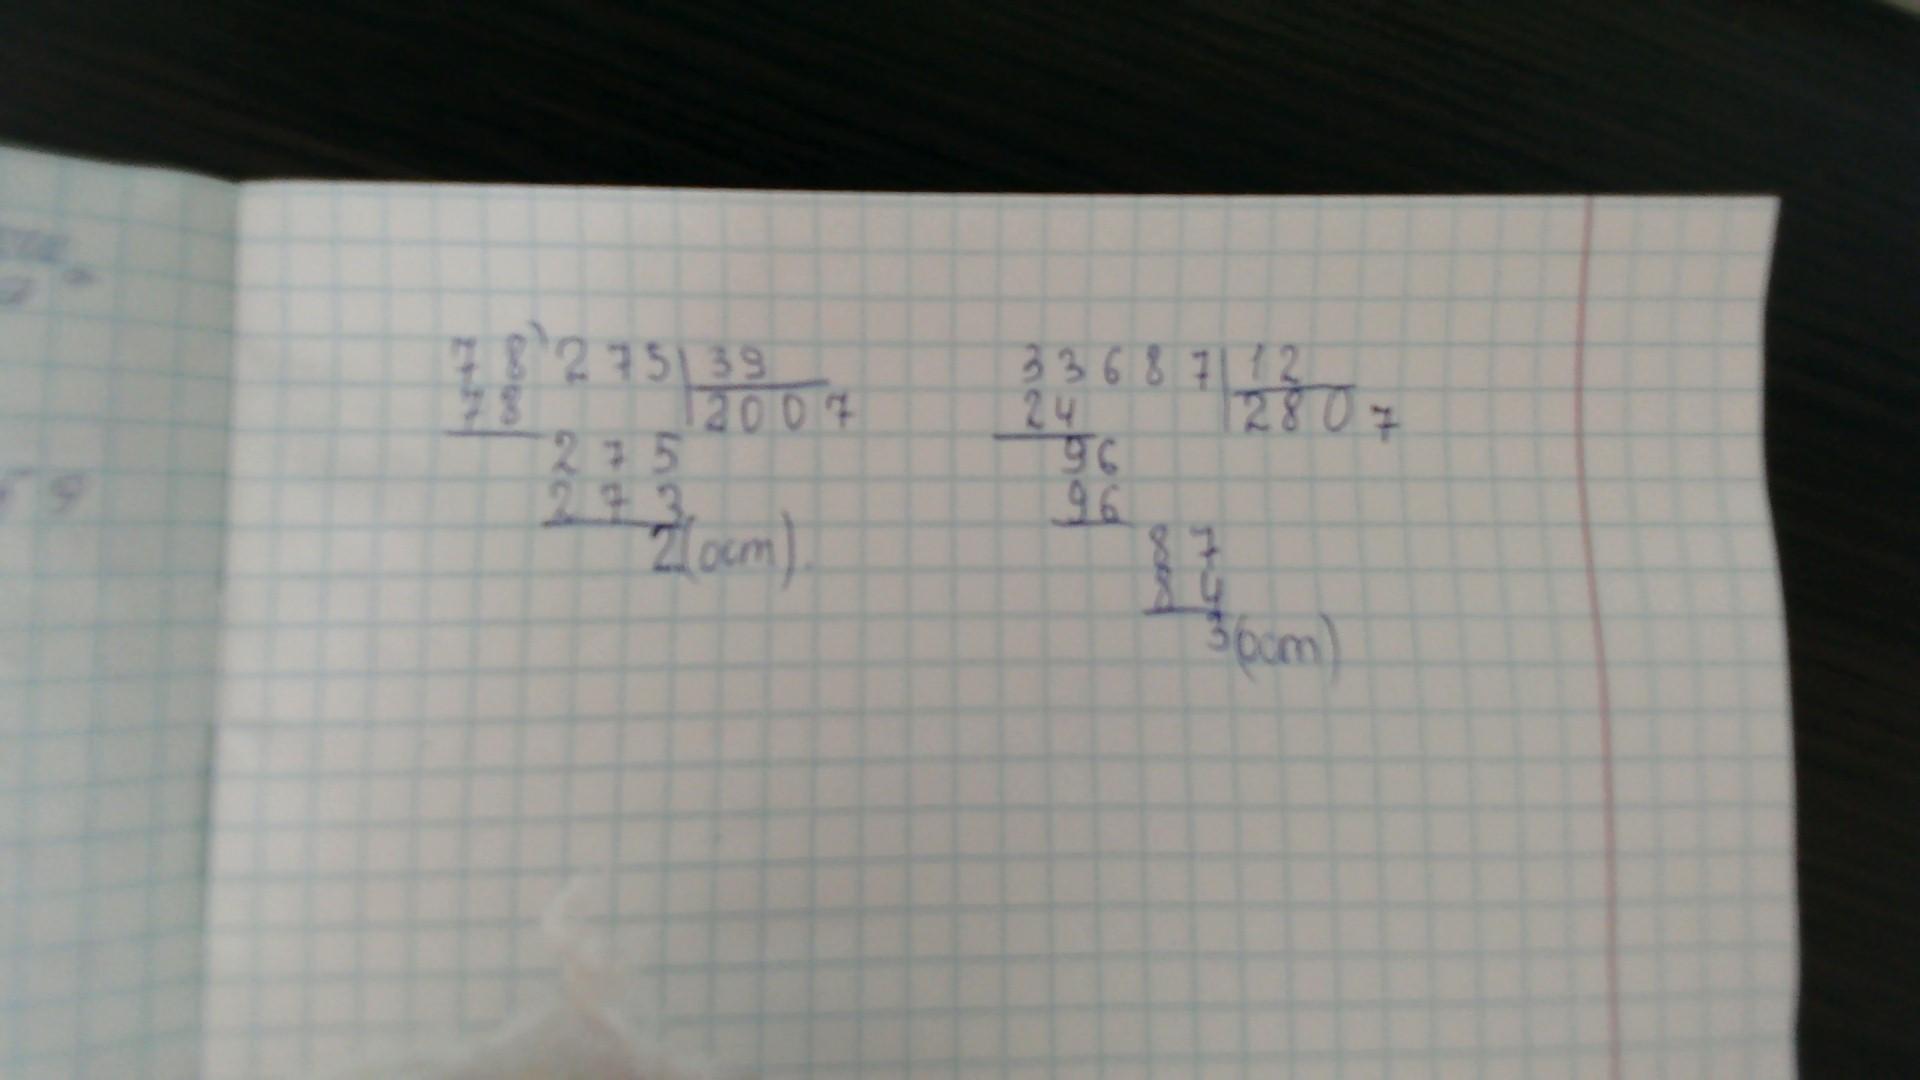 78'275|39
78 |2007
275
273
2(ост).
33687|12
24 |2807
96
96
87
84
3(ост)